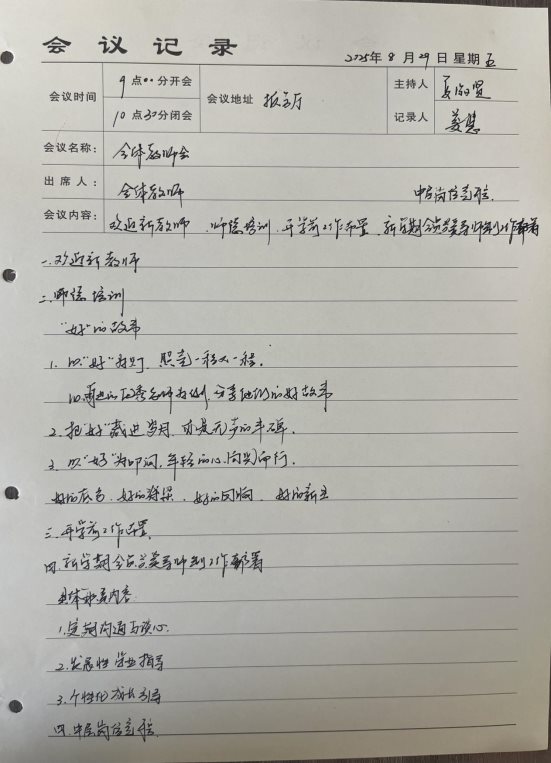 会议记录
2025年 8 月 29 日 星期 五
会议时间 9 点00分开会 会议地址 报告厅 主持人
10 点30分闭会 记录人 姜慧
会议名称： 全体教师会
出席人： 全体教师 中层岗位竞聘
会议内容： 欢迎新教师 师德培训 开学前工作布置 新学期全员导师制工作部署
一、欢迎新教师
二、师德培训
"好"的故事
1. 以"好"为灯，照亮一程又一程。
以身边的优秀老师为例，分享他们的好故事
2. 把"好"藏进岁月，亦是无声的丰碑。
3. 以"好"为叩问，年轻的心向光而行。
好的底色、好的脊梁、好的回响、好的新生
三、开学前工作布置
四、新学期全员导师制工作部署
具体内容：
1. 定期沟通与谈心。
2. 发展性学业指导
3. 个性化成长引导
四、中层岗位竞聘